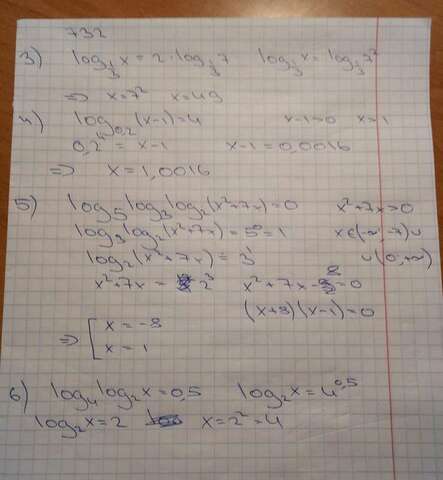 732
3) log_{1/3} x = 2·log_{1/3} 7   log_{1/3} x = log_{1/3} 7²
⇒ x=7²   x=49
4) log_{0,2} (x-1)=4   x-1=0   x=1
0,2⁴ = x-1   x-1=0,0016
⇒ x=1,0016
5) log₅ log₃ log₂ (x²+7x)=0   x²+7x>0
log₃ log₂ (x²+7x) = 5⁰=1   x∈(-∞,-7)∪
log₂ (x²+7x) = 3¹   ∪(0,+∞)
x²+7x = 2³   x²+7x-8=0
(x+8)(x-1)=0
⇒ [ x=-8
x=1
6) log₄ log₂ x=0,5   log₂ x=4^{0,5}
log₂ x=2   x=2²=4